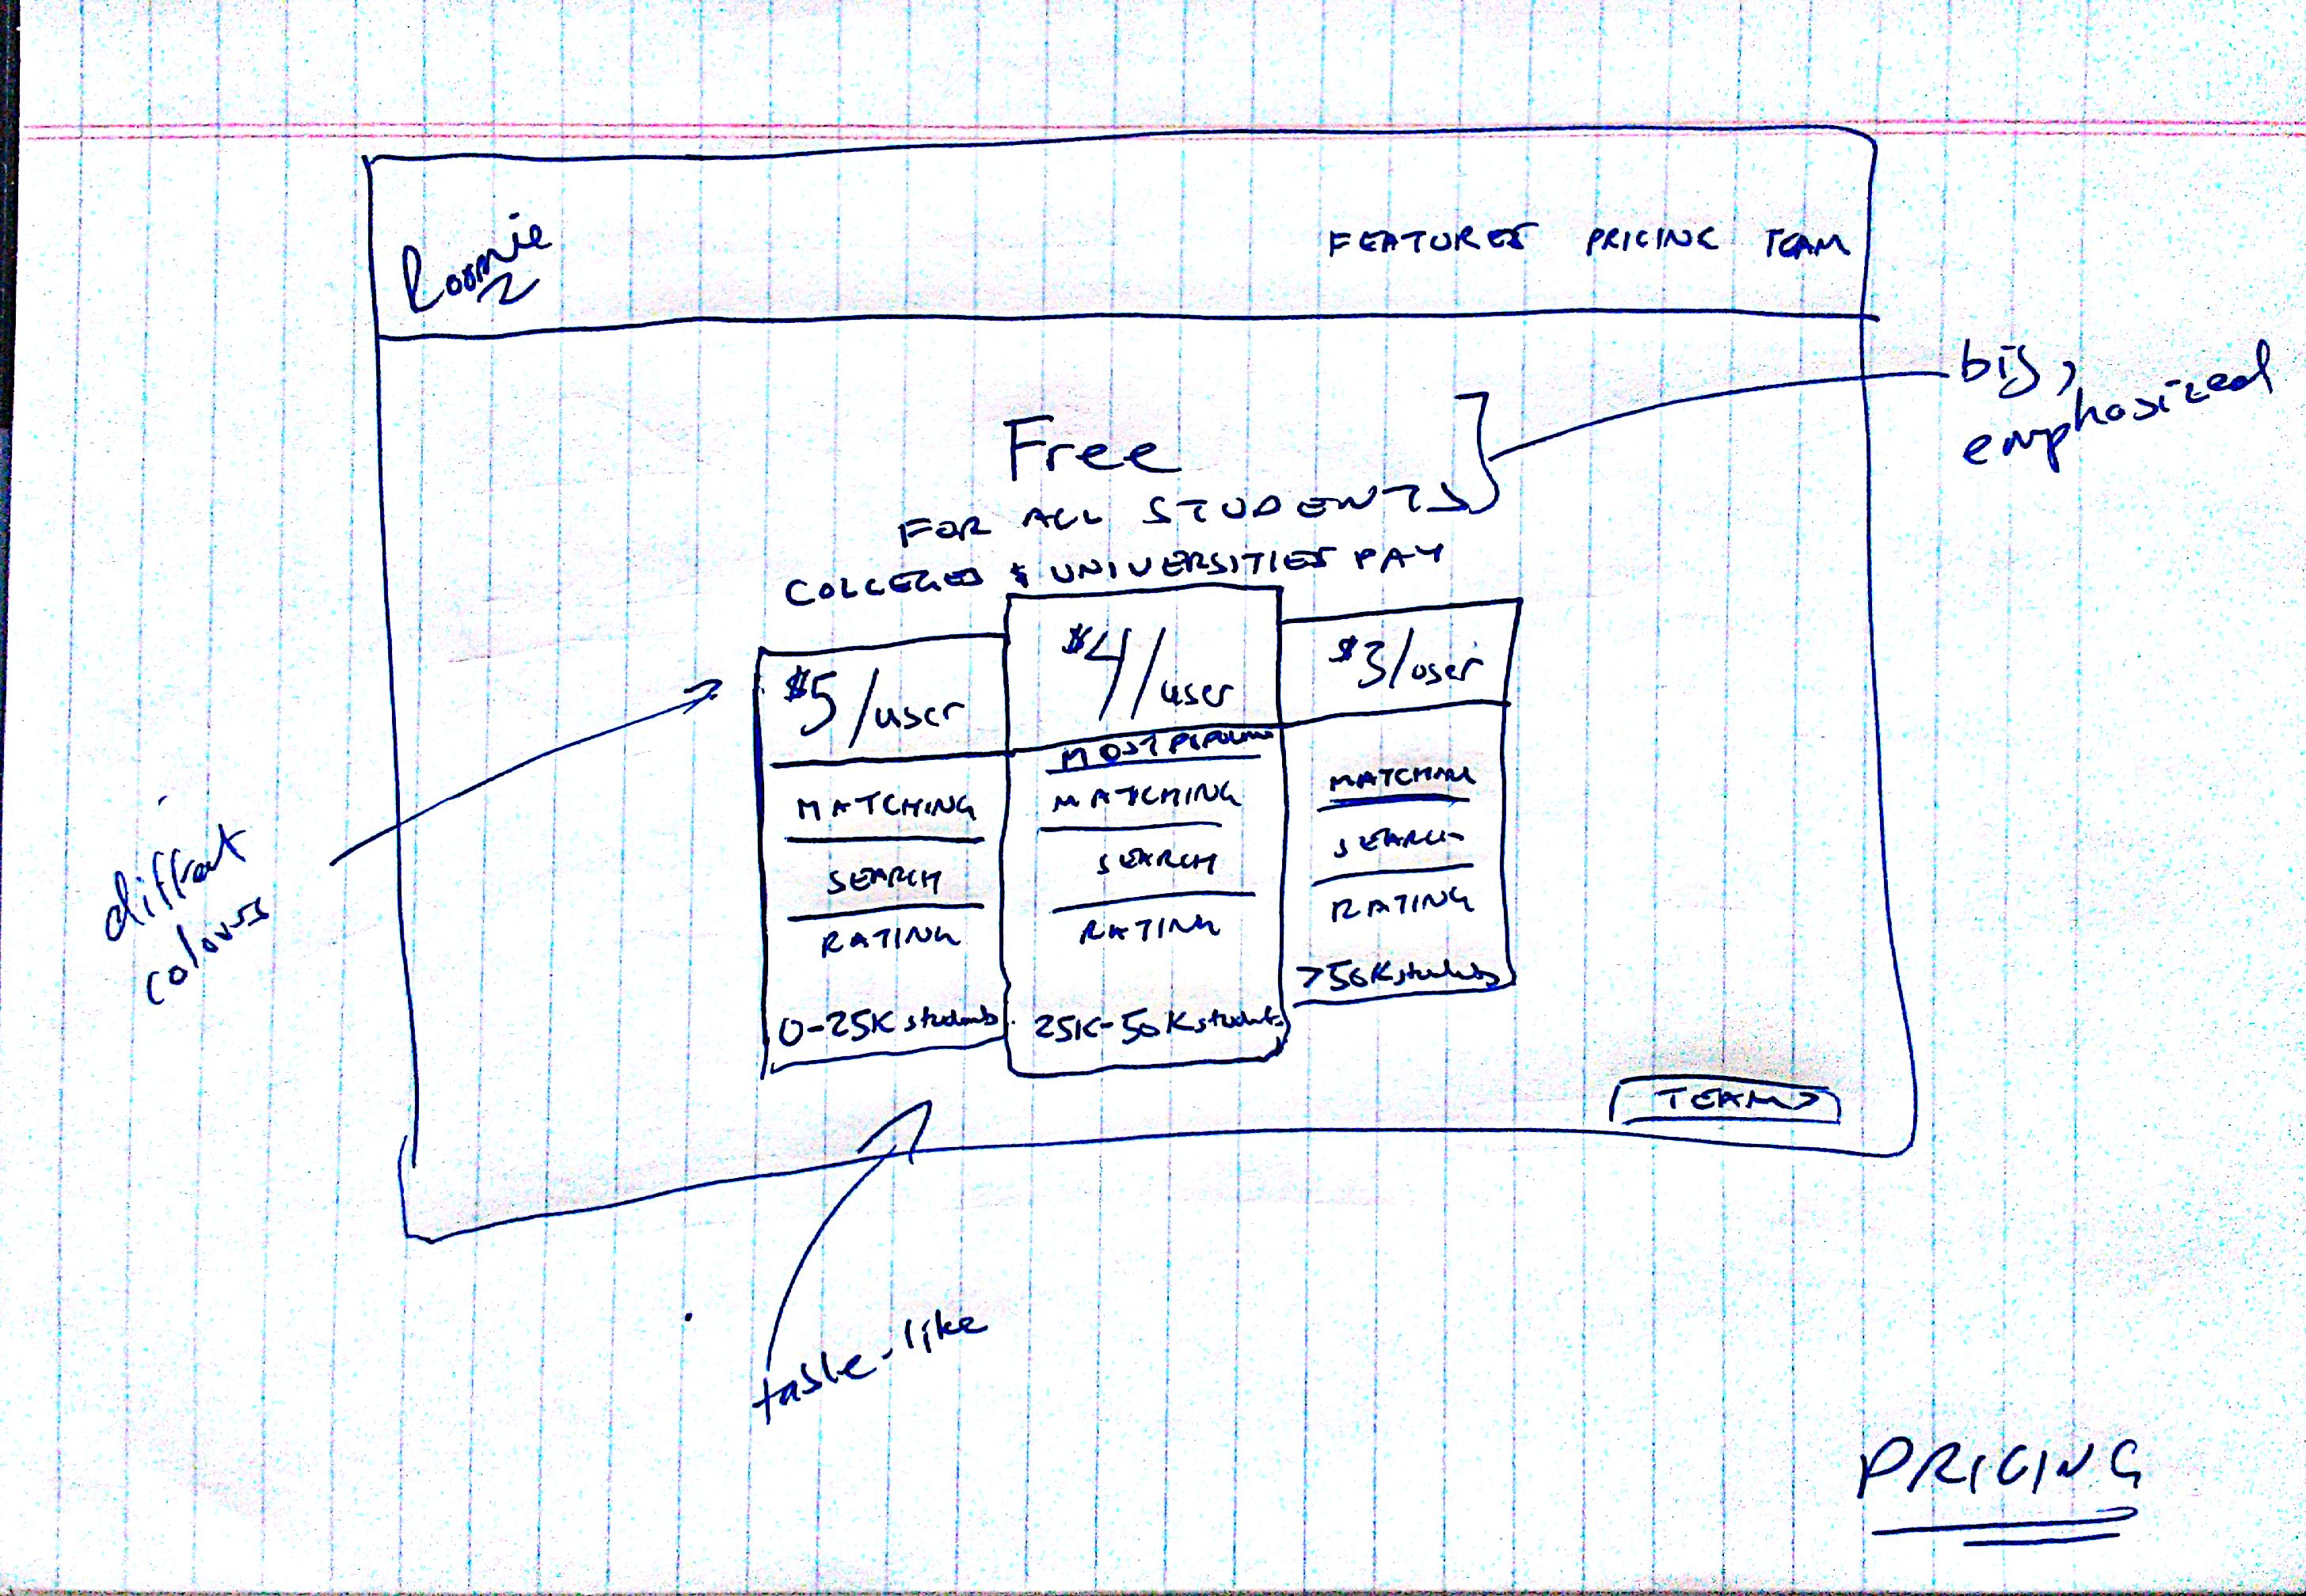 Roomie
FEATURES PRICING TEAM
big,
emphasized
Free
FOR ALL STUDENTS
COLLEGES & UNIVERSITIES PAY
$5/user
$4/user
$3/user
MOST POPULAR
MATCHING
MATCHING
MATCHING
SEARCH
SEARCH
SEARCH
RATING
RATING
RATING
0-25K students
25K-50K students
>50K students
different
colours
TEAM >
table-like
PRICING